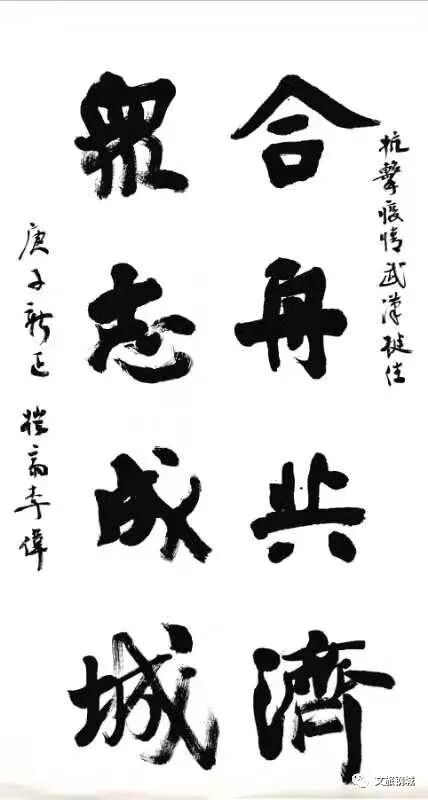 抗擊疫情武漢挺住
合舟共濟
眾志成城
庚子新正 李偉
文旅钢城